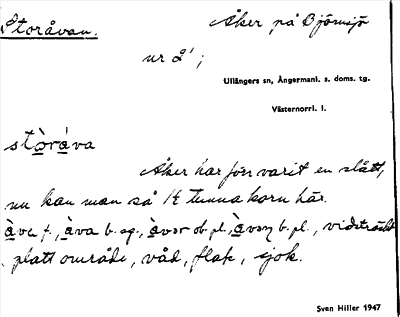 Storåvan.
Åker på Björnsjö
ur å' ;
Ullångers sn, Ångermanl. s. doms. tg.
Västernorrl. l.
stòráva
Åker har förr varit en slått,
nu kan man så 1½ tunna korn här.
àva f., àva b. sg., àvor ob. pl., àvon b. pl., vidsträckt
platt område, våd, flat, sjok.
Sven Hiller 1947